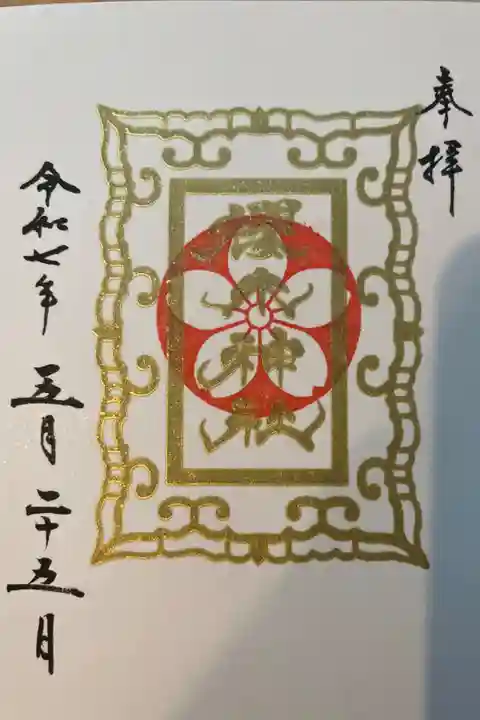 奉拝
櫻木神社
令和七年 五月二十五日